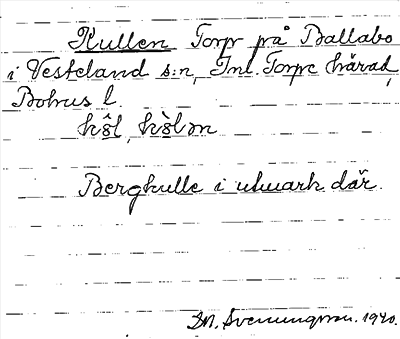 Kullen Torp på Ballabo
i Vesteland s:n, Inl. Torpe härad,
Bohus l.
kŝl, ks̀lən
Bergkulle i utmark där.
Sveningson. 1940.